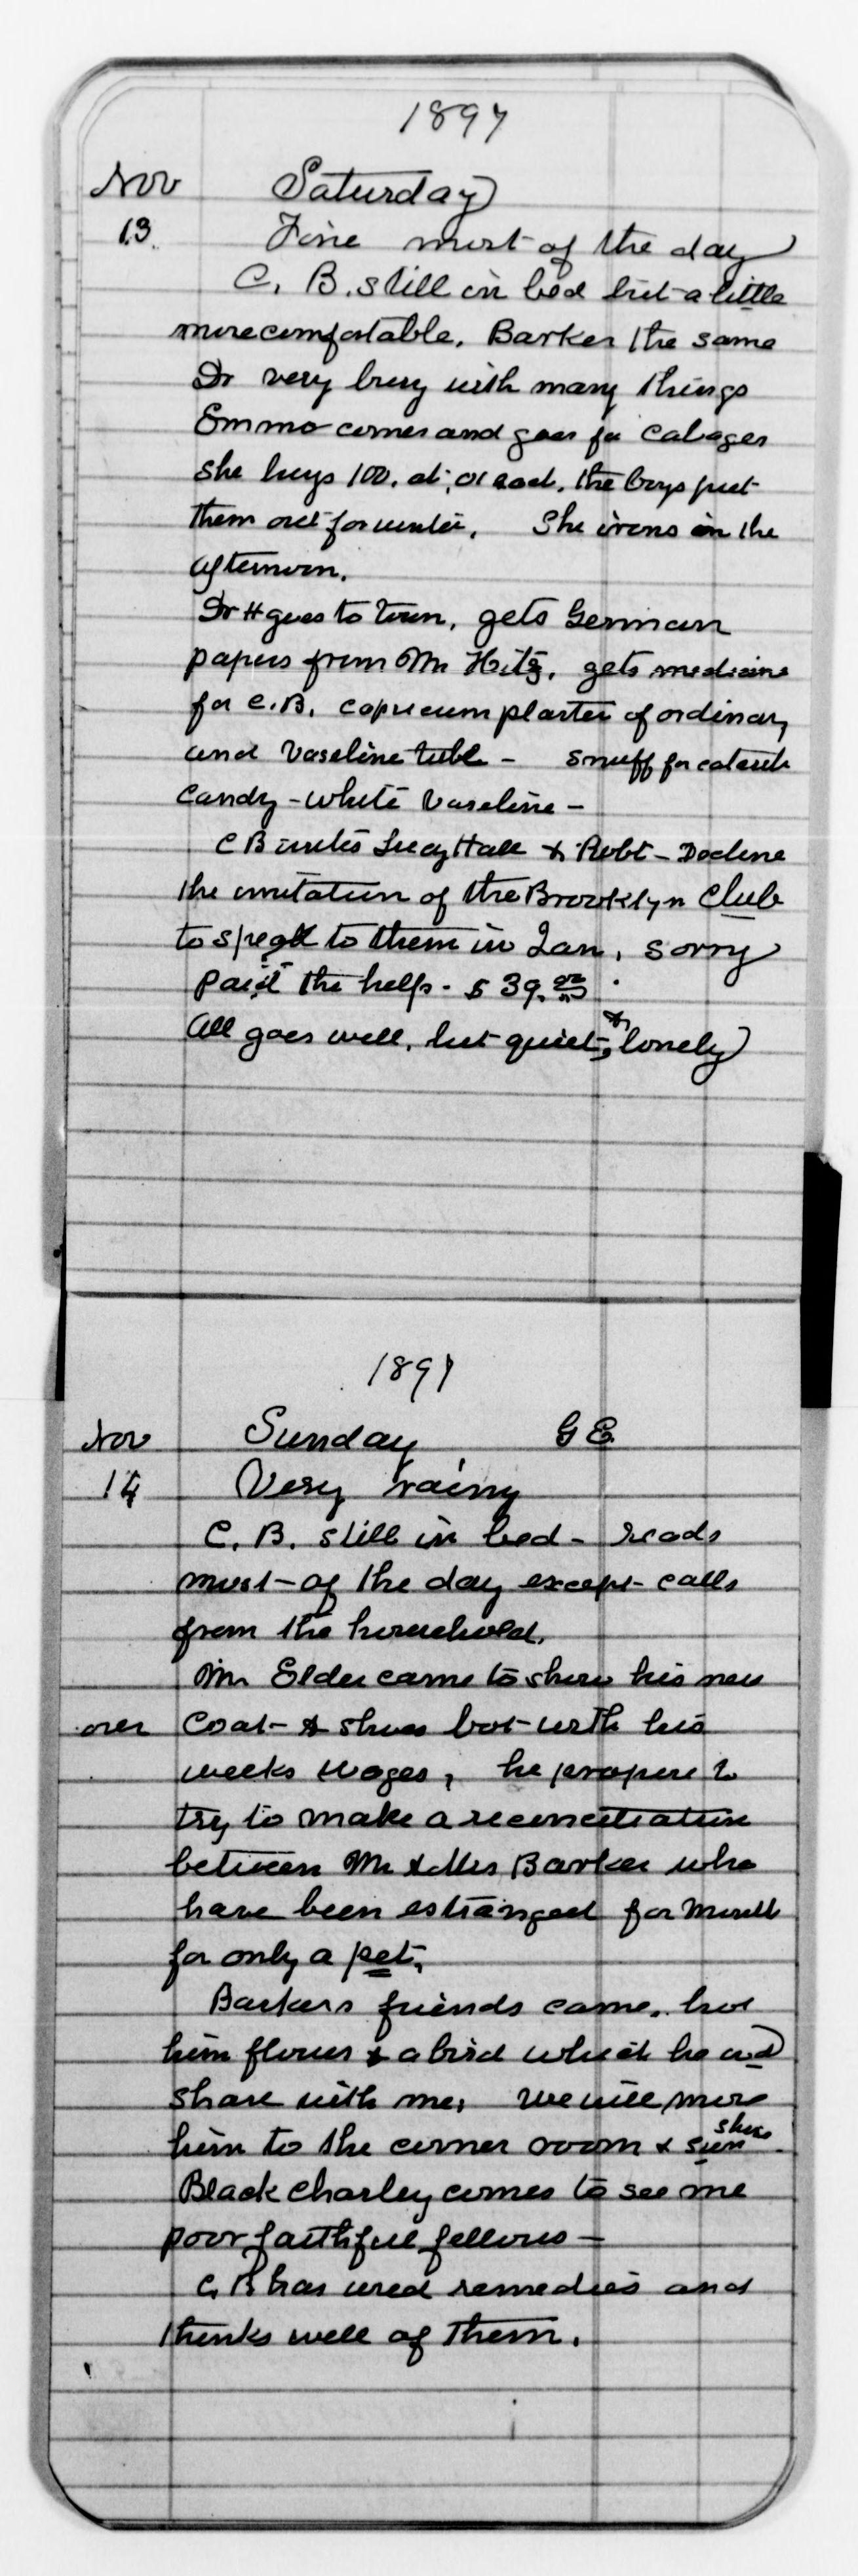 1897
Nov Saturday
13. Fine most of the day
C. B. still in bed but a little
more comfortable. Barker the same
Dr very busy with many things
Emma comes and goes for cabages
she buys 100. at .01 each. the boys put
them out for winter. She irons in the
afternoon.
Dr H goes to town, gets German
papers from Mr Hitz. gets medicine
for C.B. capsicum plaster of ordinary
and Vaseline tube - snuff for catarrh
candy - white Vaseline -
C B writes Lucy Hall & Robt - Decline
the invitation of the Brooklyn Club
to speak to them in Jan, sorry
paid the help - $39.00
All goes well, but quiet, & lonely
1897
Nov Sunday G E
14 Very rainy
C. B. still in bed - reads
most of the day except calls
from the household.
Mr. Elder came to show his new
over coat & shoes bot with his
weeks wages, he propose to
try to make a reconciliation
between Mr & Mrs Barker who
have been estranged for
for only a pet.
Barkers friends came,
him flowers & a bird which he
share with me. we will move
him to the corner room & sun shine
Black Charley comes to see me
poor faithful fellows -
C. B has used remedies and
thinks well of them.